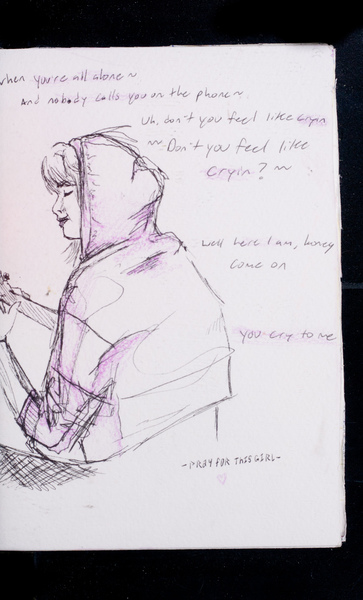 when you're all alone ~
And nobody calls you on the phone ~
Uh, don't you feel like cryin
~~ Don't you feel like
cryin? ~~
Well here I am, honey
come on
you cry to me
- PRAY FOR THIS GIRL -